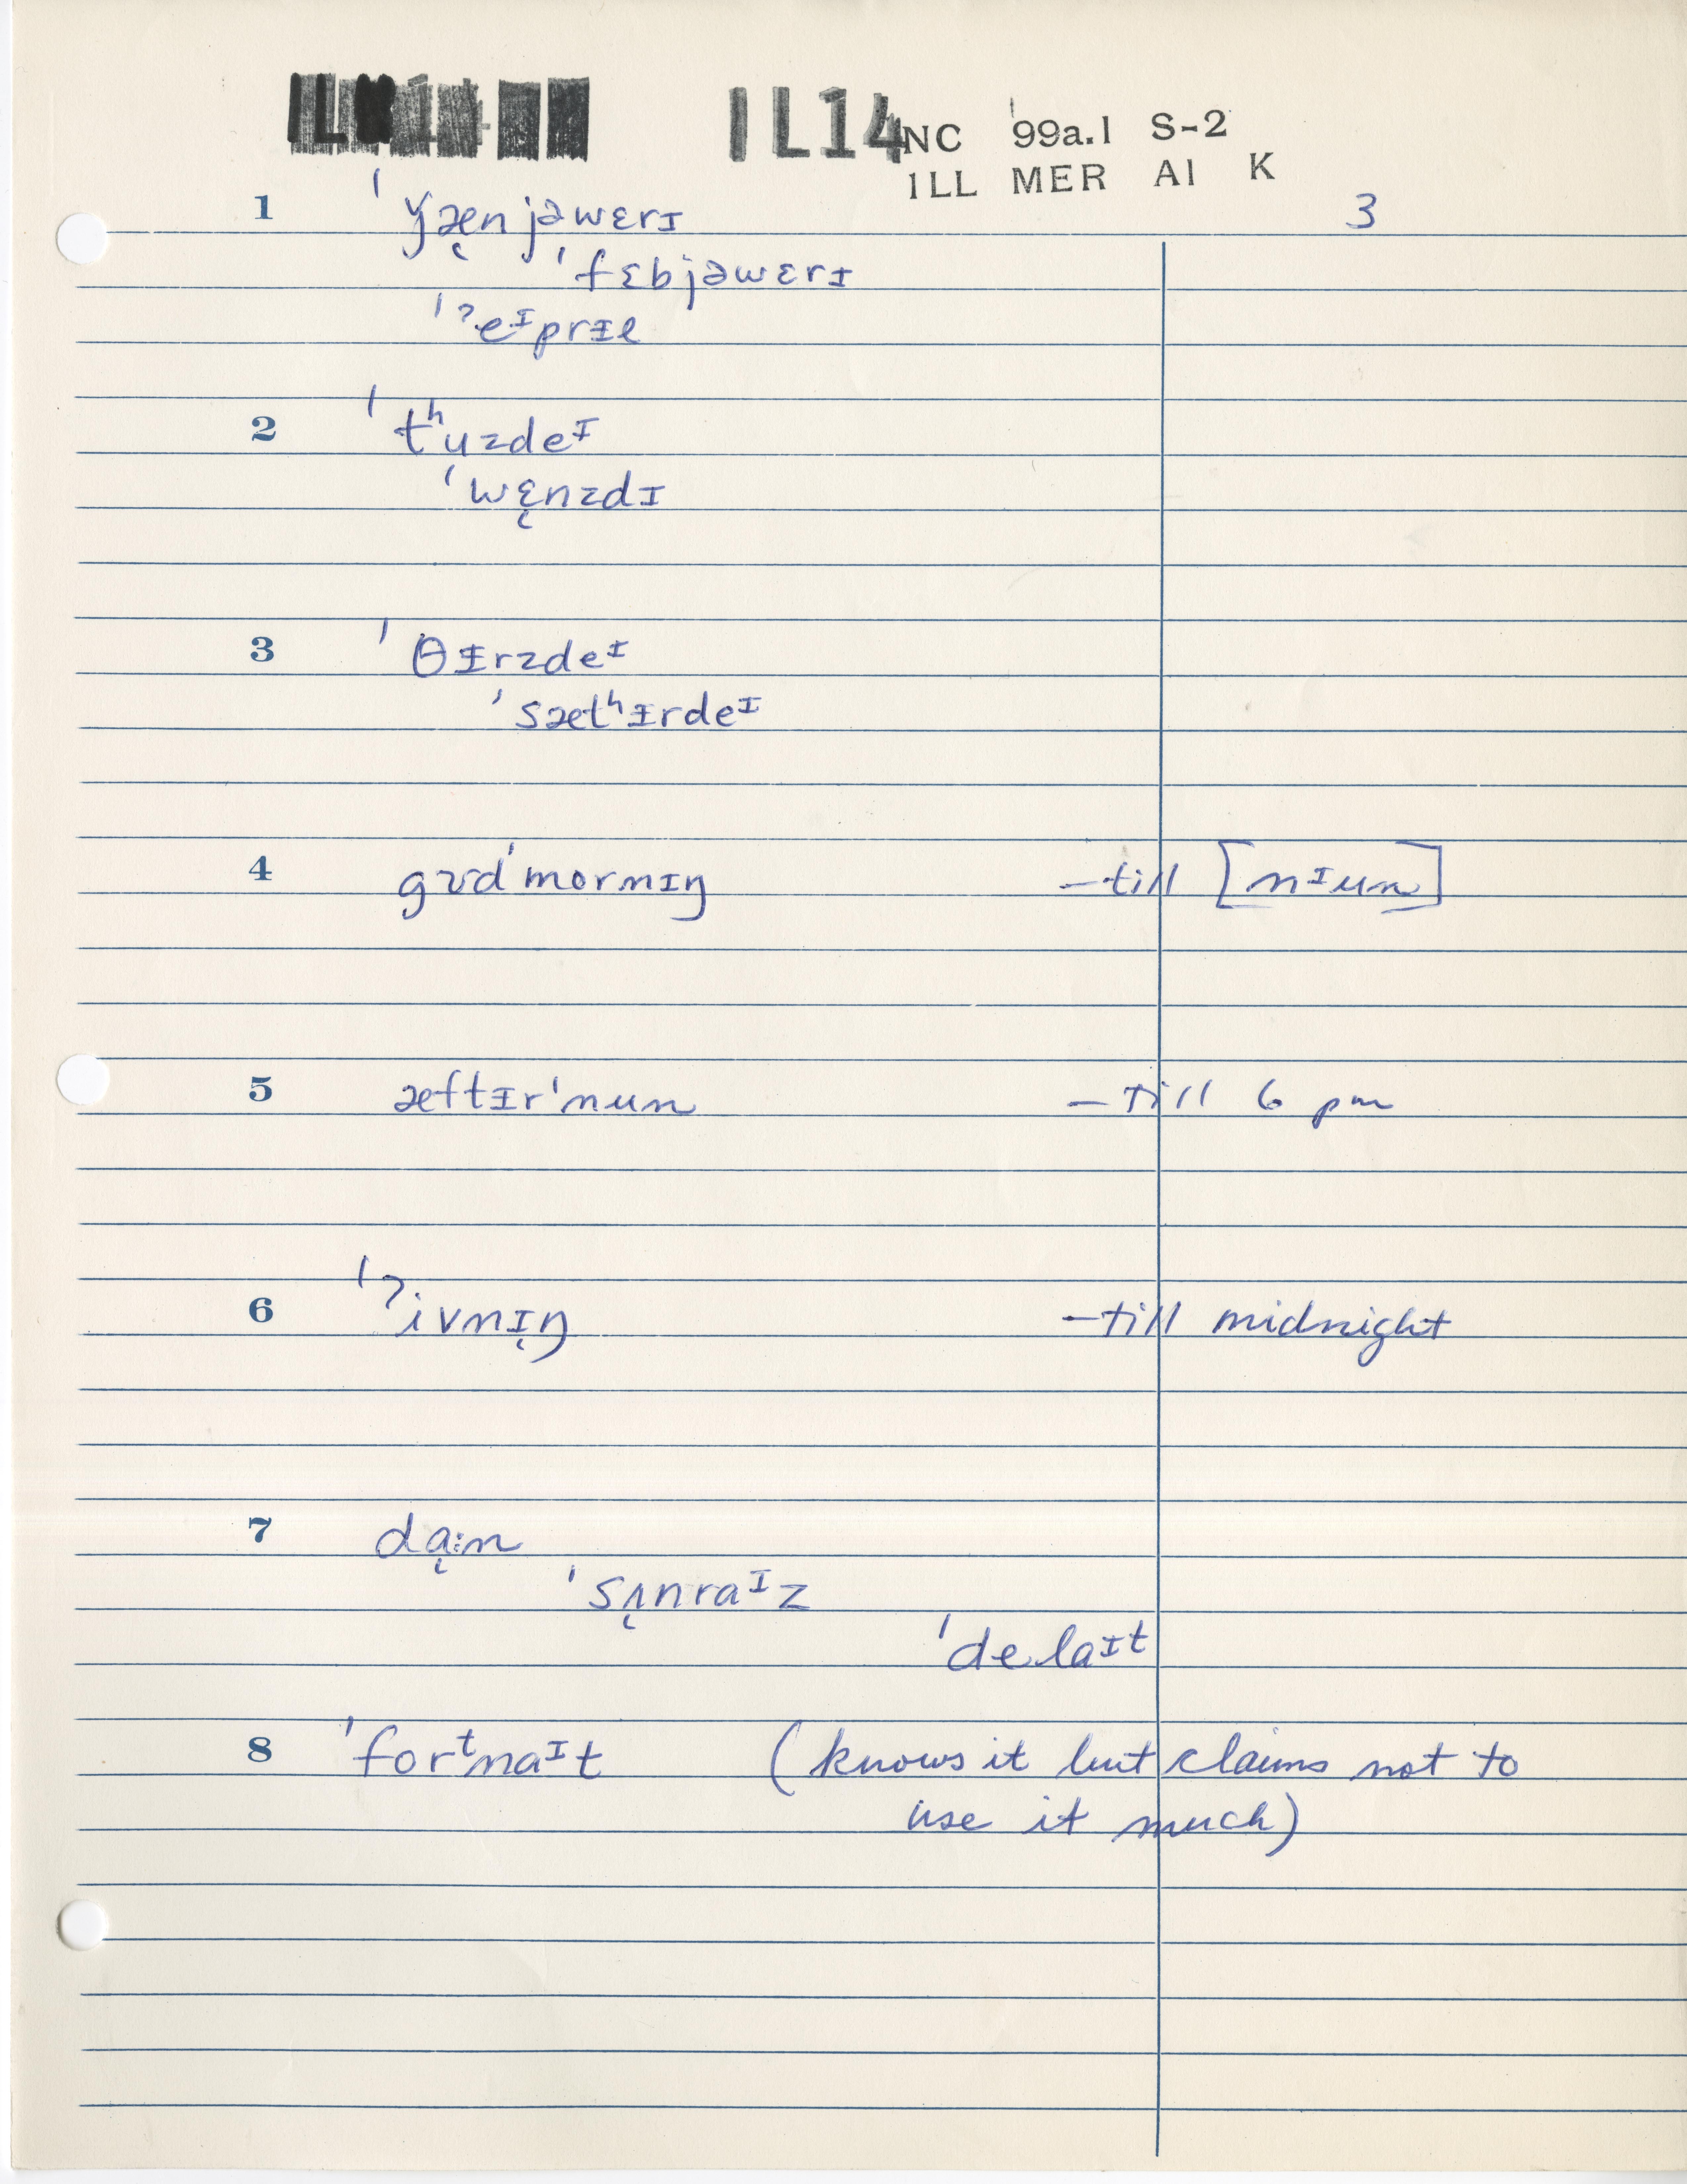 IL14 NC '99a.1 S-2
ILL MER A1 K
3
1 ˈǰæ̨njəwɛrɪ
ˈfɛbjəwɛrɪ
ˈˀeᶦprɪl
2 ˈtʰuzdeᶦ
ˈwɛ̨nzdɪ
3 ˈθɨrzdeᶦ
ˈsætʰɨrdeᶦ
4 gʊdˈmornɪŋ –till [nᶦun]
5 æftɨrˈnun –till 6 pm
6 ˈˀivnɪ̨ŋ –till midnight
7 dɑ̨:n
ˈsʌ̨nraᶦz
ˈdelaᶦt
8 ˈforᵗnaᶦt (knows it but claims not to
use it much)